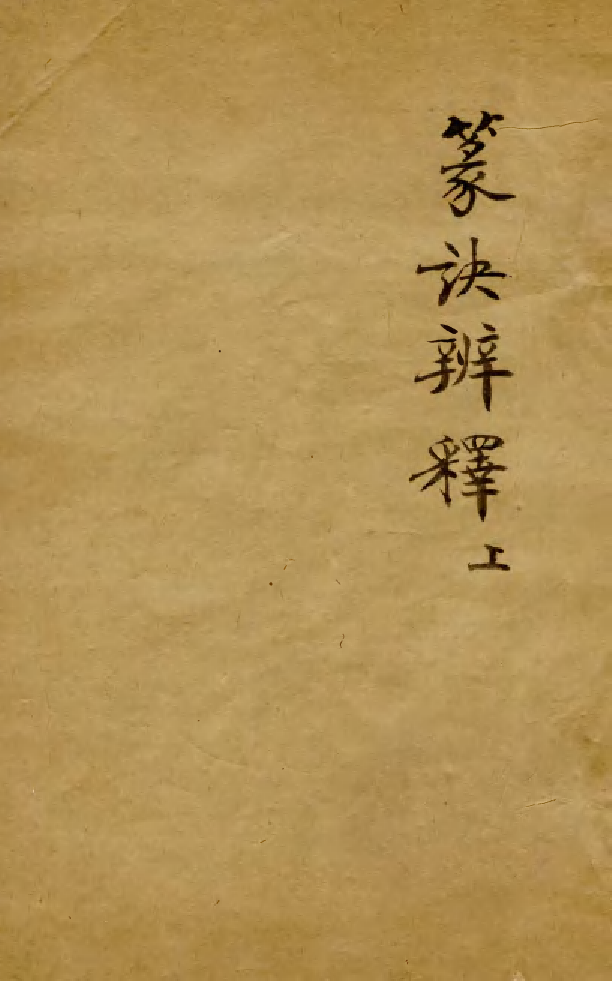 篆訣辨釋上